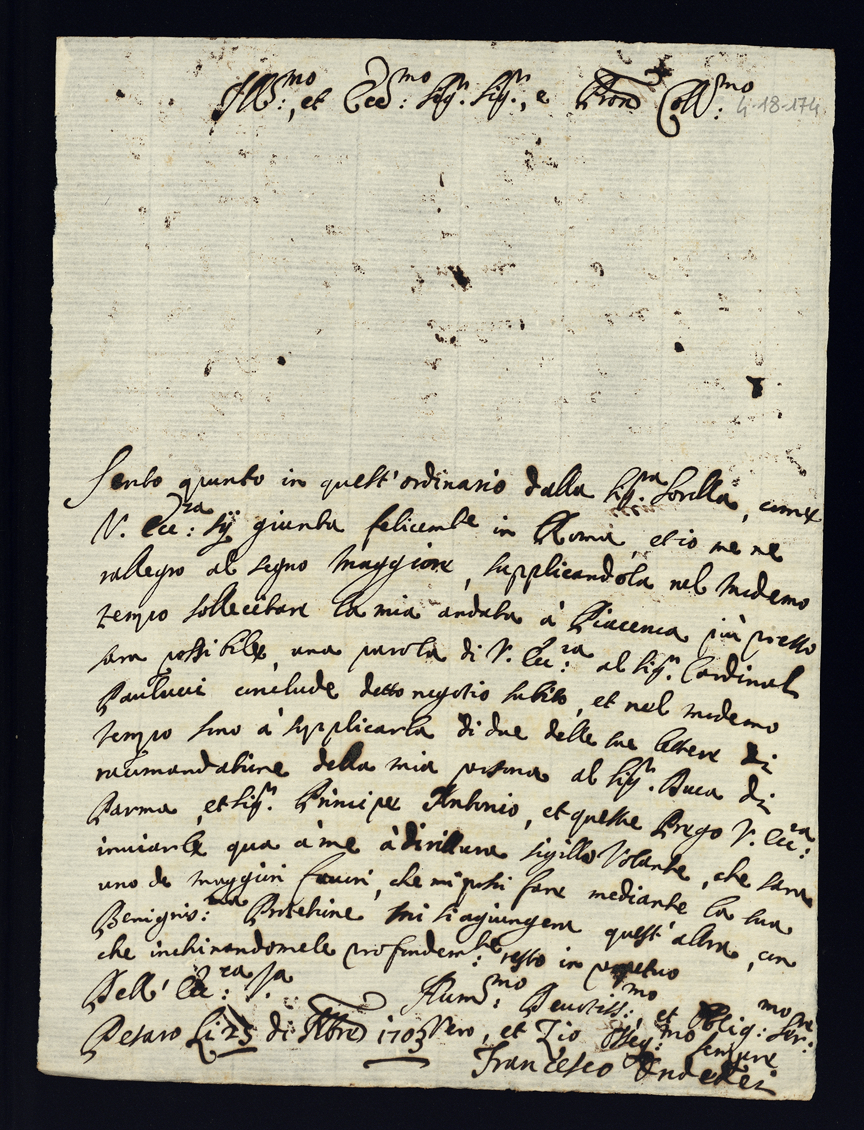 Ill:mo, et Ecc:mo Sig.r Sig.r, e Pron Coll:mo
4-18-174
Sento giunto in quest'ordinario dalla Sig.ra Sorella, come
V. Ecc:za sij giunta felicemte in Roma, et io me ne
rallegro al segno maggiore, supplicandola nel medemo
tempo sollecitare la mia andata à Piacenza più presto
sara possibile, una parola di V. Ecc:za al Sig.r Cardinal
Paulucci conclude detto negotio subito, et nel medemo
tempo sono à supplicarla di due delle sue lettere di
racomandatione della mia persona al Sig.r Duca di
Parma, et Sig.r Principe Antonio, et queste Prego V. Ecc:za
inviarle qua à me à dirittura sigillo Volante, che sara
uno de maggiori favori, che mi possi fare mediante la sua
Benignis:ma Protetione mi s'agiungera quest'altra, con
che inchinandomele profondem:te resto in perpetuo
Dell' Ecc:za Sa
Hum:mo Devotiss:mo et Oblig:mo Ser:re
Pesaro li 25 di Xbre 1703 Vero, et Zio Osseq:mo sempre
Francesco